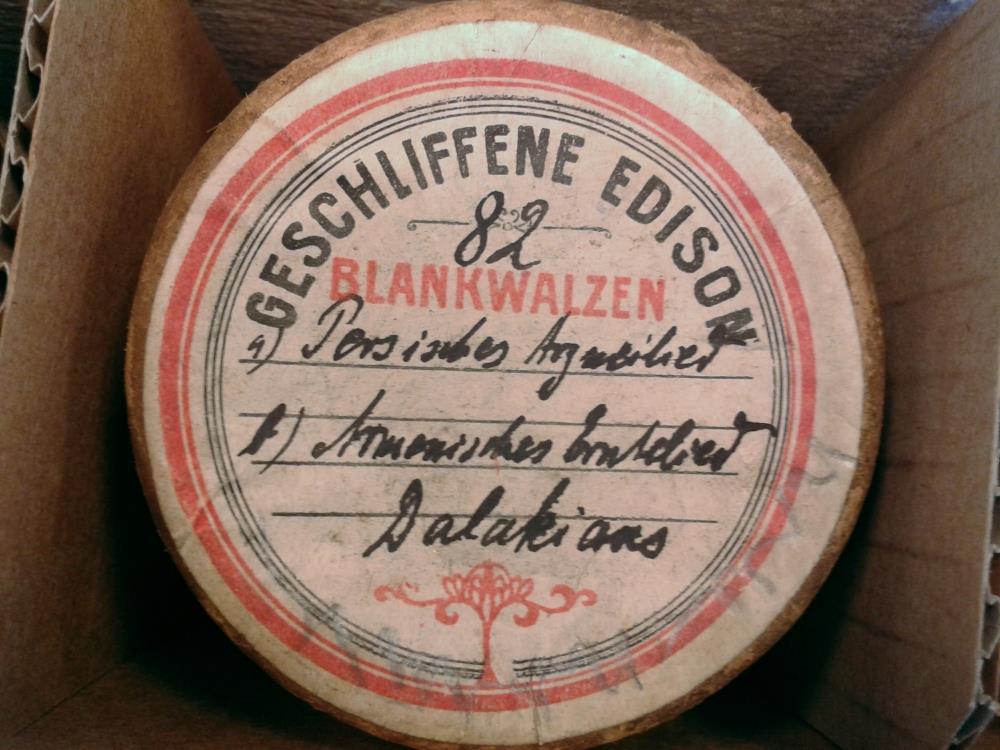 GESCHLIFFENE EDISON
82
BLANKWALZEN
a) Persisches
b) Armenisches Erntelied
Dalakians